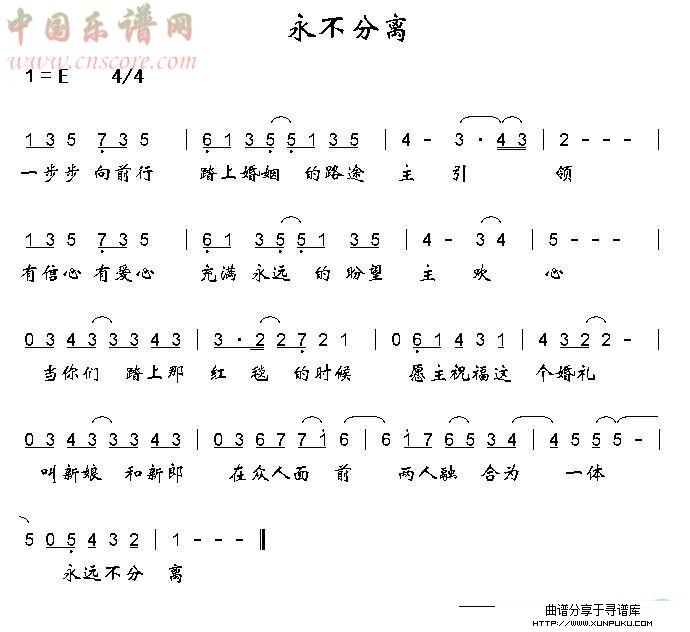 中国乐谱网
www.cnscore.com
永不分离
1=E 4/4
1 3 5 7 3 5 | 6 1 3 5 5 1 3 5 | 4 - 3 · 4 3 | 2 - - - |
一步步 向前行 踏上婚姻 的路途 主 引 领
1 3 5 7 3 5 | 6 1 3 5 5 1 3 5 | 4 - 3 4 | 5 - - - |
有信心 有爱心 充满 永远 的 盼望 主 欢 心
0 3 4 3 3 3 4 3 | 3 · 2 2 7 2 1 | 0 6 1 4 3 1 | 4 3 2 2 - |
当你们 踏上那 红 毯 的时候 愿主祝福这 个婚礼
0 3 4 3 3 3 4 3 | 0 3 6 7 7 1 6 | 6 1 7 6 5 3 4 | 4 5 5 5 - |
叫新娘 和新郎 在众人面 前 两人融 合为 一体
5 0 5 4 3 2 | 1 - - - ‖
永远不分 离
曲谱分享于寻谱库
HTTP://WWW.XUNPUKU.COM